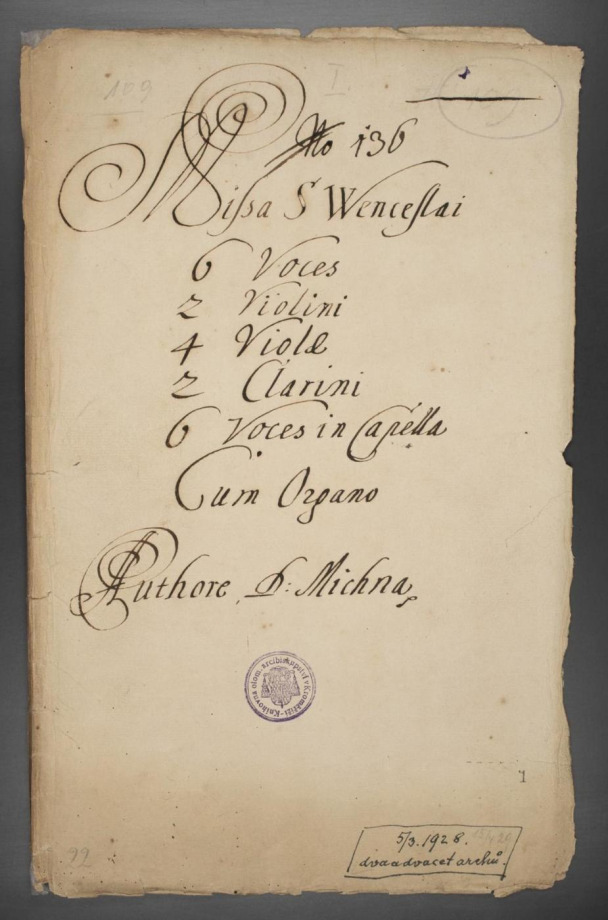 109
I
No 136
Missa S Wenceslai
6 Voces
2 Violini
4 Violæ
2 Clarini
6 Voces in Capella
Cum Organo
Authore D: Michna
Knihovna olom. arcibiskupství v Kroměříži
1
5/3. 1928.
dvaadvacet archů.
99